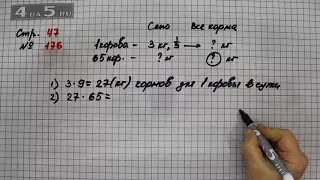 4DA5.RU
Стр. 47
№ 176
Сено Все корма
1 корова – 3 кг, 1/9 → ? кг
65 кор. – ? кг ? кг
1) 3·9=27(кг) кормов для 1 коровы в сутки
2) 27·65=